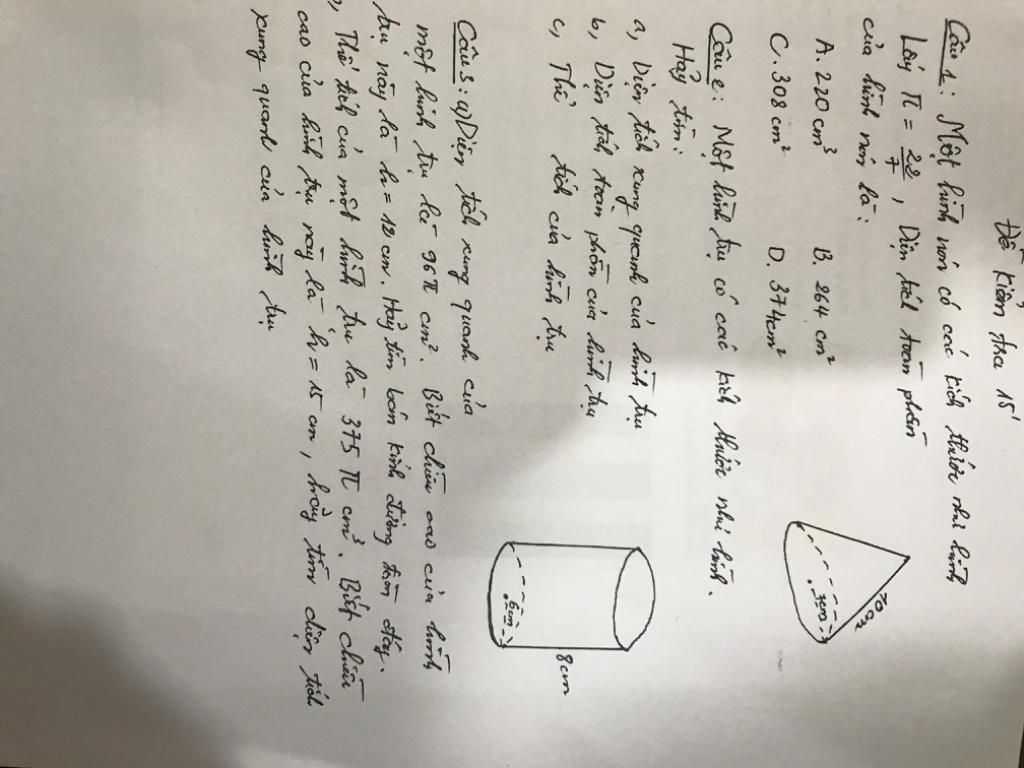 Đề kiểm tra 15'
Câu 1: Một hình nón có các kích thước như hình
Lấy π = 22/7, Diện tích toàn phần
của hình nón là:
A. 220 cm³ B. 264 cm²
C. 308 cm² D. 374cm²
10cm
7cm
Câu 2: Một hình trụ có các kích thước như hình.
Hãy tìm:
a, Diện tích xung quanh của hình trụ
b, Diện tích toàn phần của hình trụ
c, Thể tích của hình trụ
6cm
8cm
Câu 3: a) Diện tích xung quanh của
một hình trụ là 96π cm². Biết chiều cao của hình
trụ này là h = 12 cm. Hãy tìm bán kính đường tròn đáy.
b, Thể tích của một hình trụ là 375 π cm³. Biết chiều
cao của hình trụ này là h = 15 cm, hãy tìm diện tích
xung quanh của hình trụ